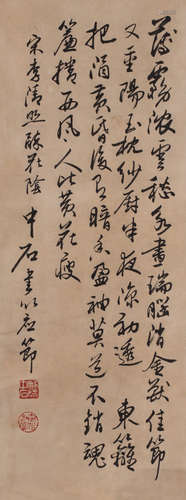 薄霧濃雲愁永晝瑞腦消金獸佳節
又重陽玉枕紗廚半夜涼初透 東籬
把酒黃昏後有暗香盈袖莫道不銷魂
簾捲西風人比黃花瘦
宋李清照醉花陰 中石書以應節